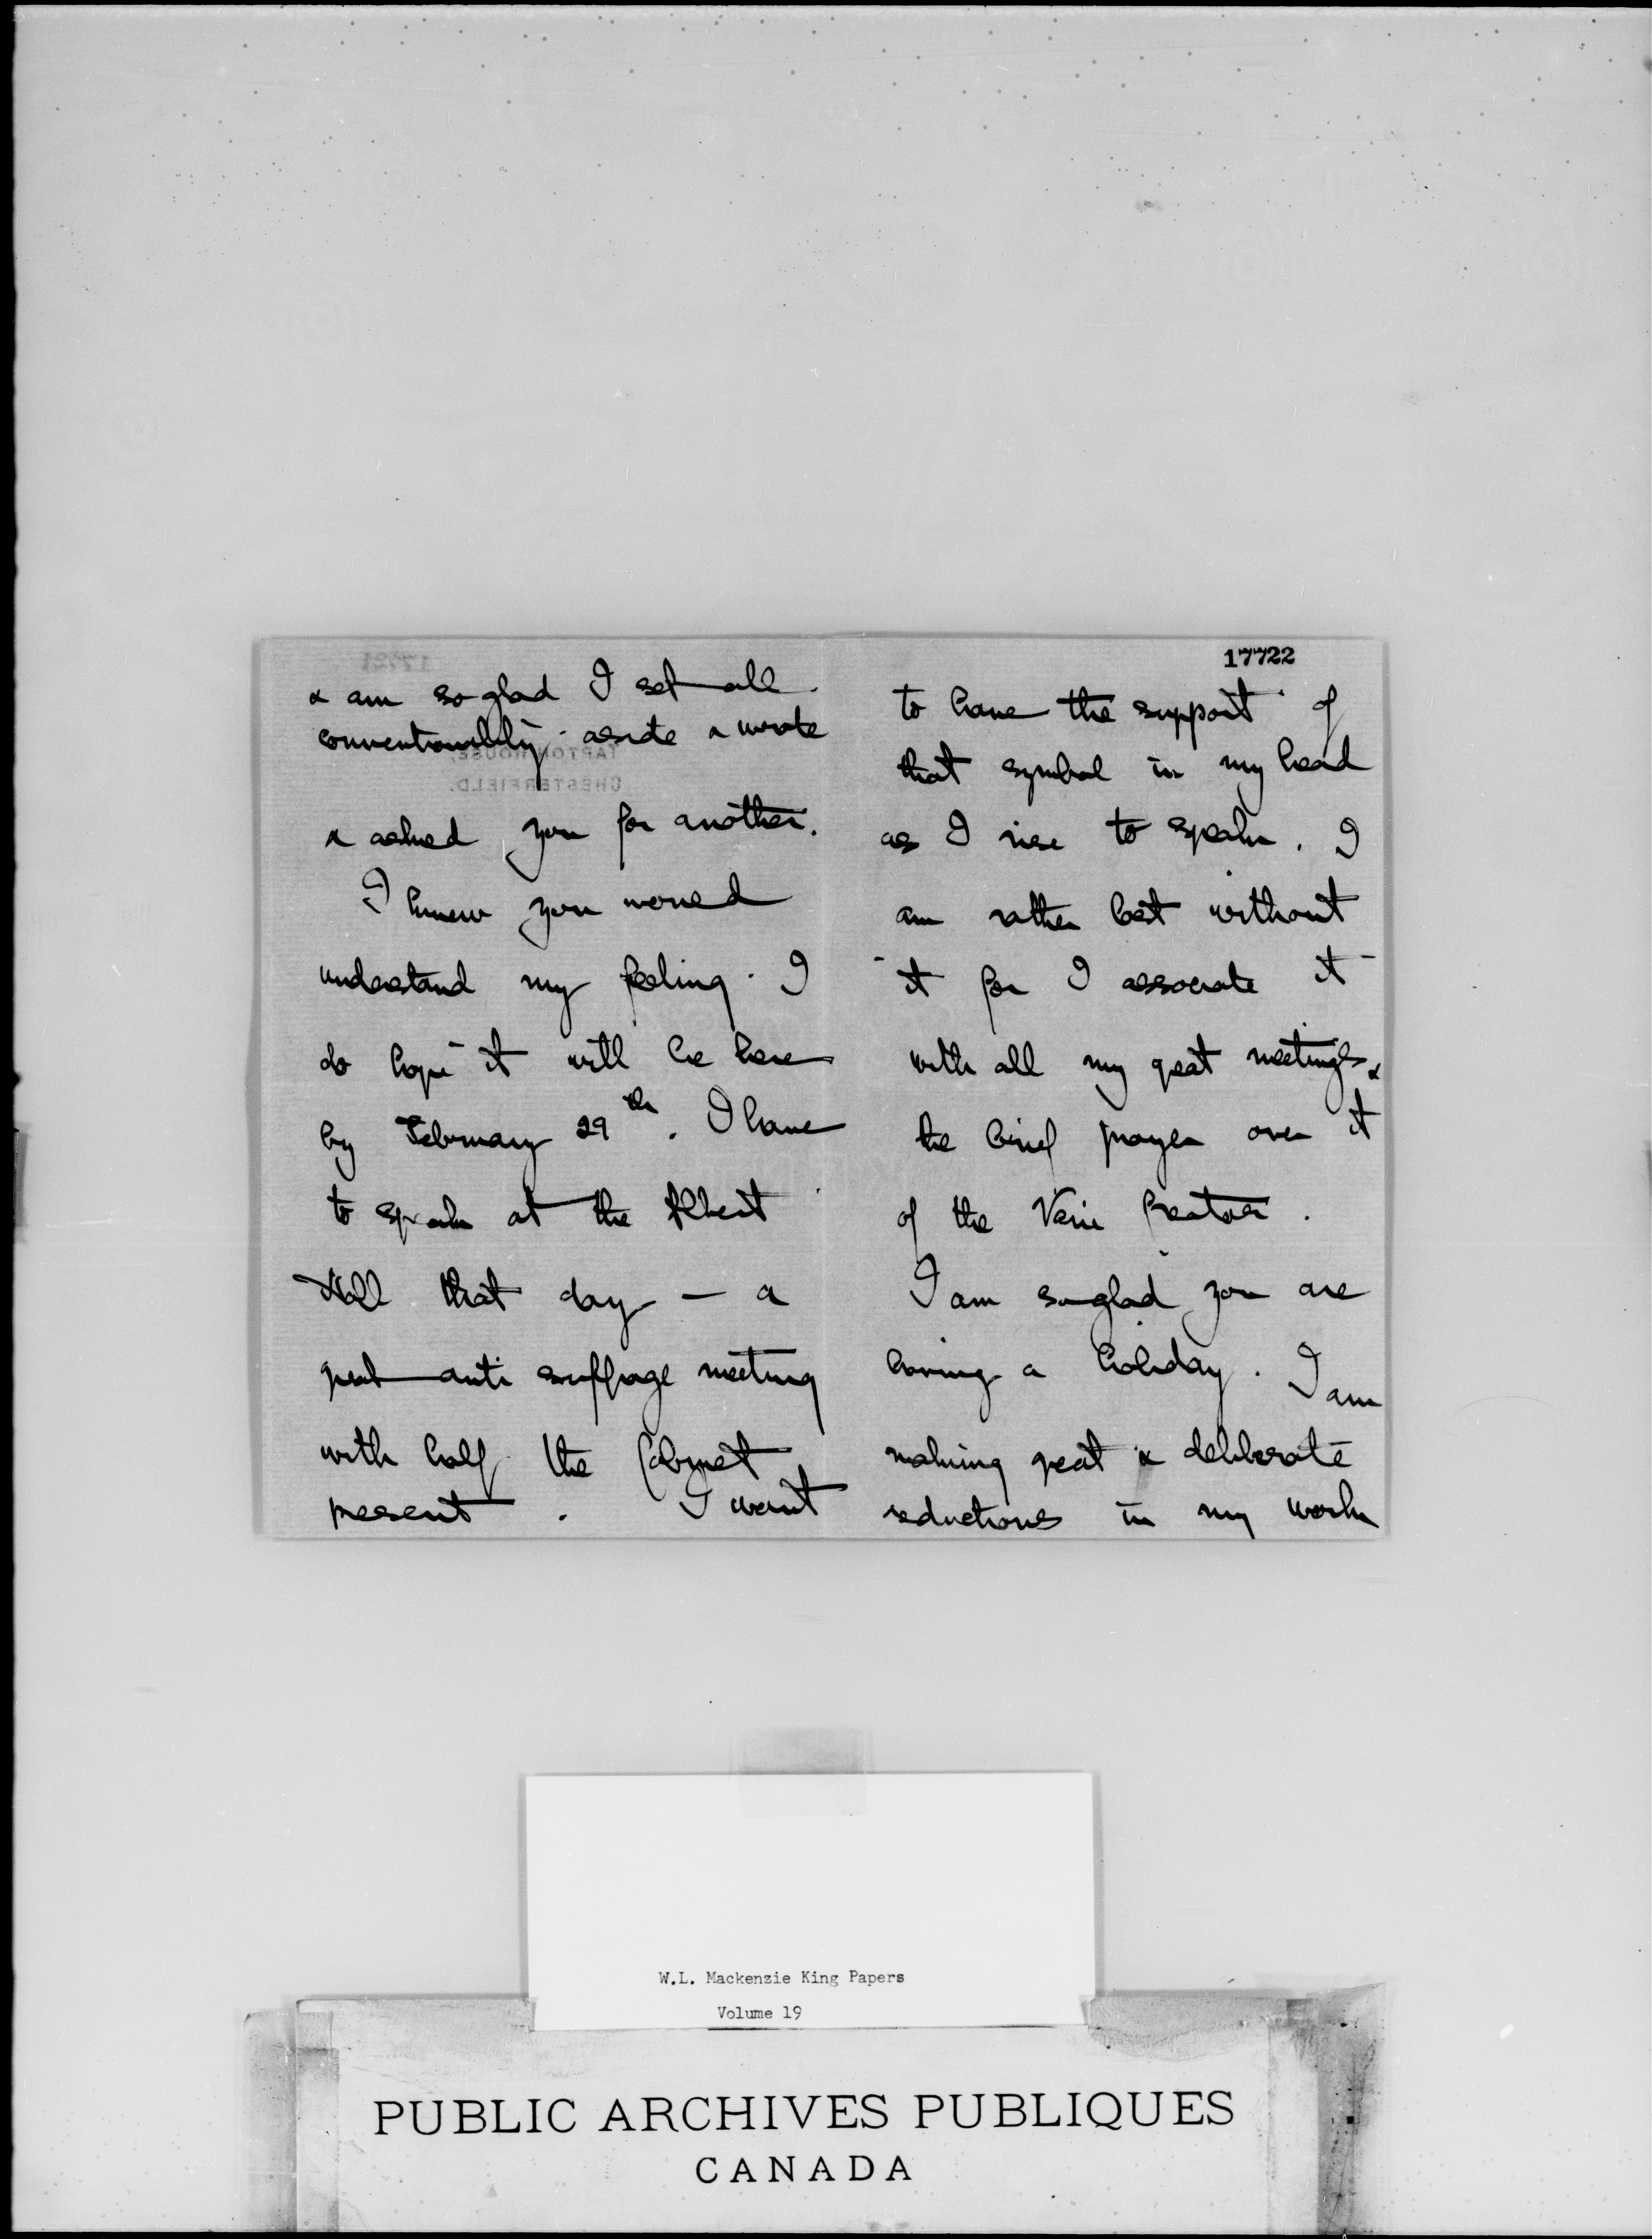 & am so glad I set all
conventionality aside & wrote
& asked you for another.
I knew you would
understand my feeling. I
do hope it will be here
by February 29th. I have
to speak at the Albert
Hall that day — a
great anti suffrage meeting
with half the Cabinet
present. I want
17722
to have the support of
that symbol in my head
as I rise to speak. I
am rather lost without
it for I associate it
with all my great meetings &
the brief prayer over it
of the Veni Creator.
I am so glad you are
having a holiday. I am
making great & deliberate
reductions in my work
TAPTON HOUSE,
CHESTERFIELD.
17721
W.L. Mackenzie King Papers
Volume 19
PUBLIC ARCHIVES PUBLIQUES
CANADA